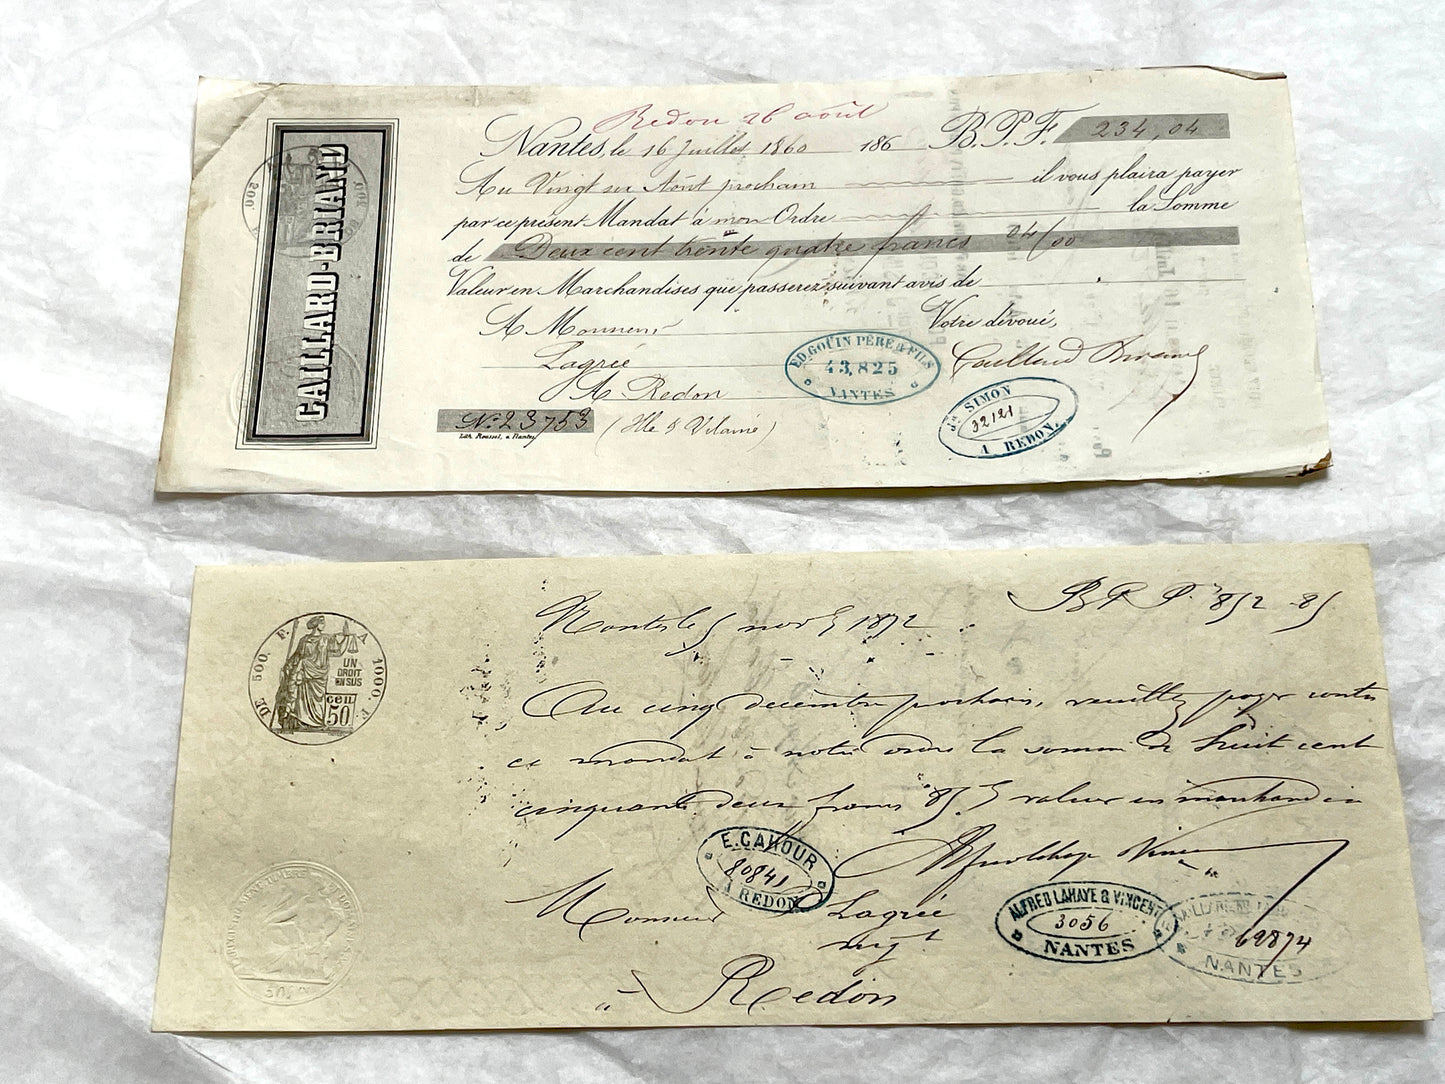 CAILLARD-BRIAND
Redon 26 août
Nantes, le 16 Juillet 1860 186 B.P.F. 234,04
Au Vingt six Août prochain il vous plaira payer
par ce présent Mandat à mon Ordre la Somme
de Deux cent trente quatre francs 04/00
Valeur en Marchandises que passerez suivant avis de
A Monsieur Votre dévoué,
Lagrée Caillard Briand
A Redon
No. 23753 (Ille & Vilaine)
Lith. Roussel, à Nantes
ED. GOUIN PÈRE & FILS
43,825
NANTES
Jn SIMON
32121
A REDON.
B P F. 852 85
Nantes le 5 nov 1872
DE 500. F. A 1000. F.
UN
DROIT
EN SUS
cen
50
Au cinq décembre prochain, veuillez payer contre
ce mandat à notre ordre la somme de huit cent
cinquante deux francs 85 valeur en marchandise
E. CAHOUR
80841
A REDON
Monsieur Lagrée
ALFRED LAHAYE & VINCENT
3056
NANTES
69874
NANTES
à Redon